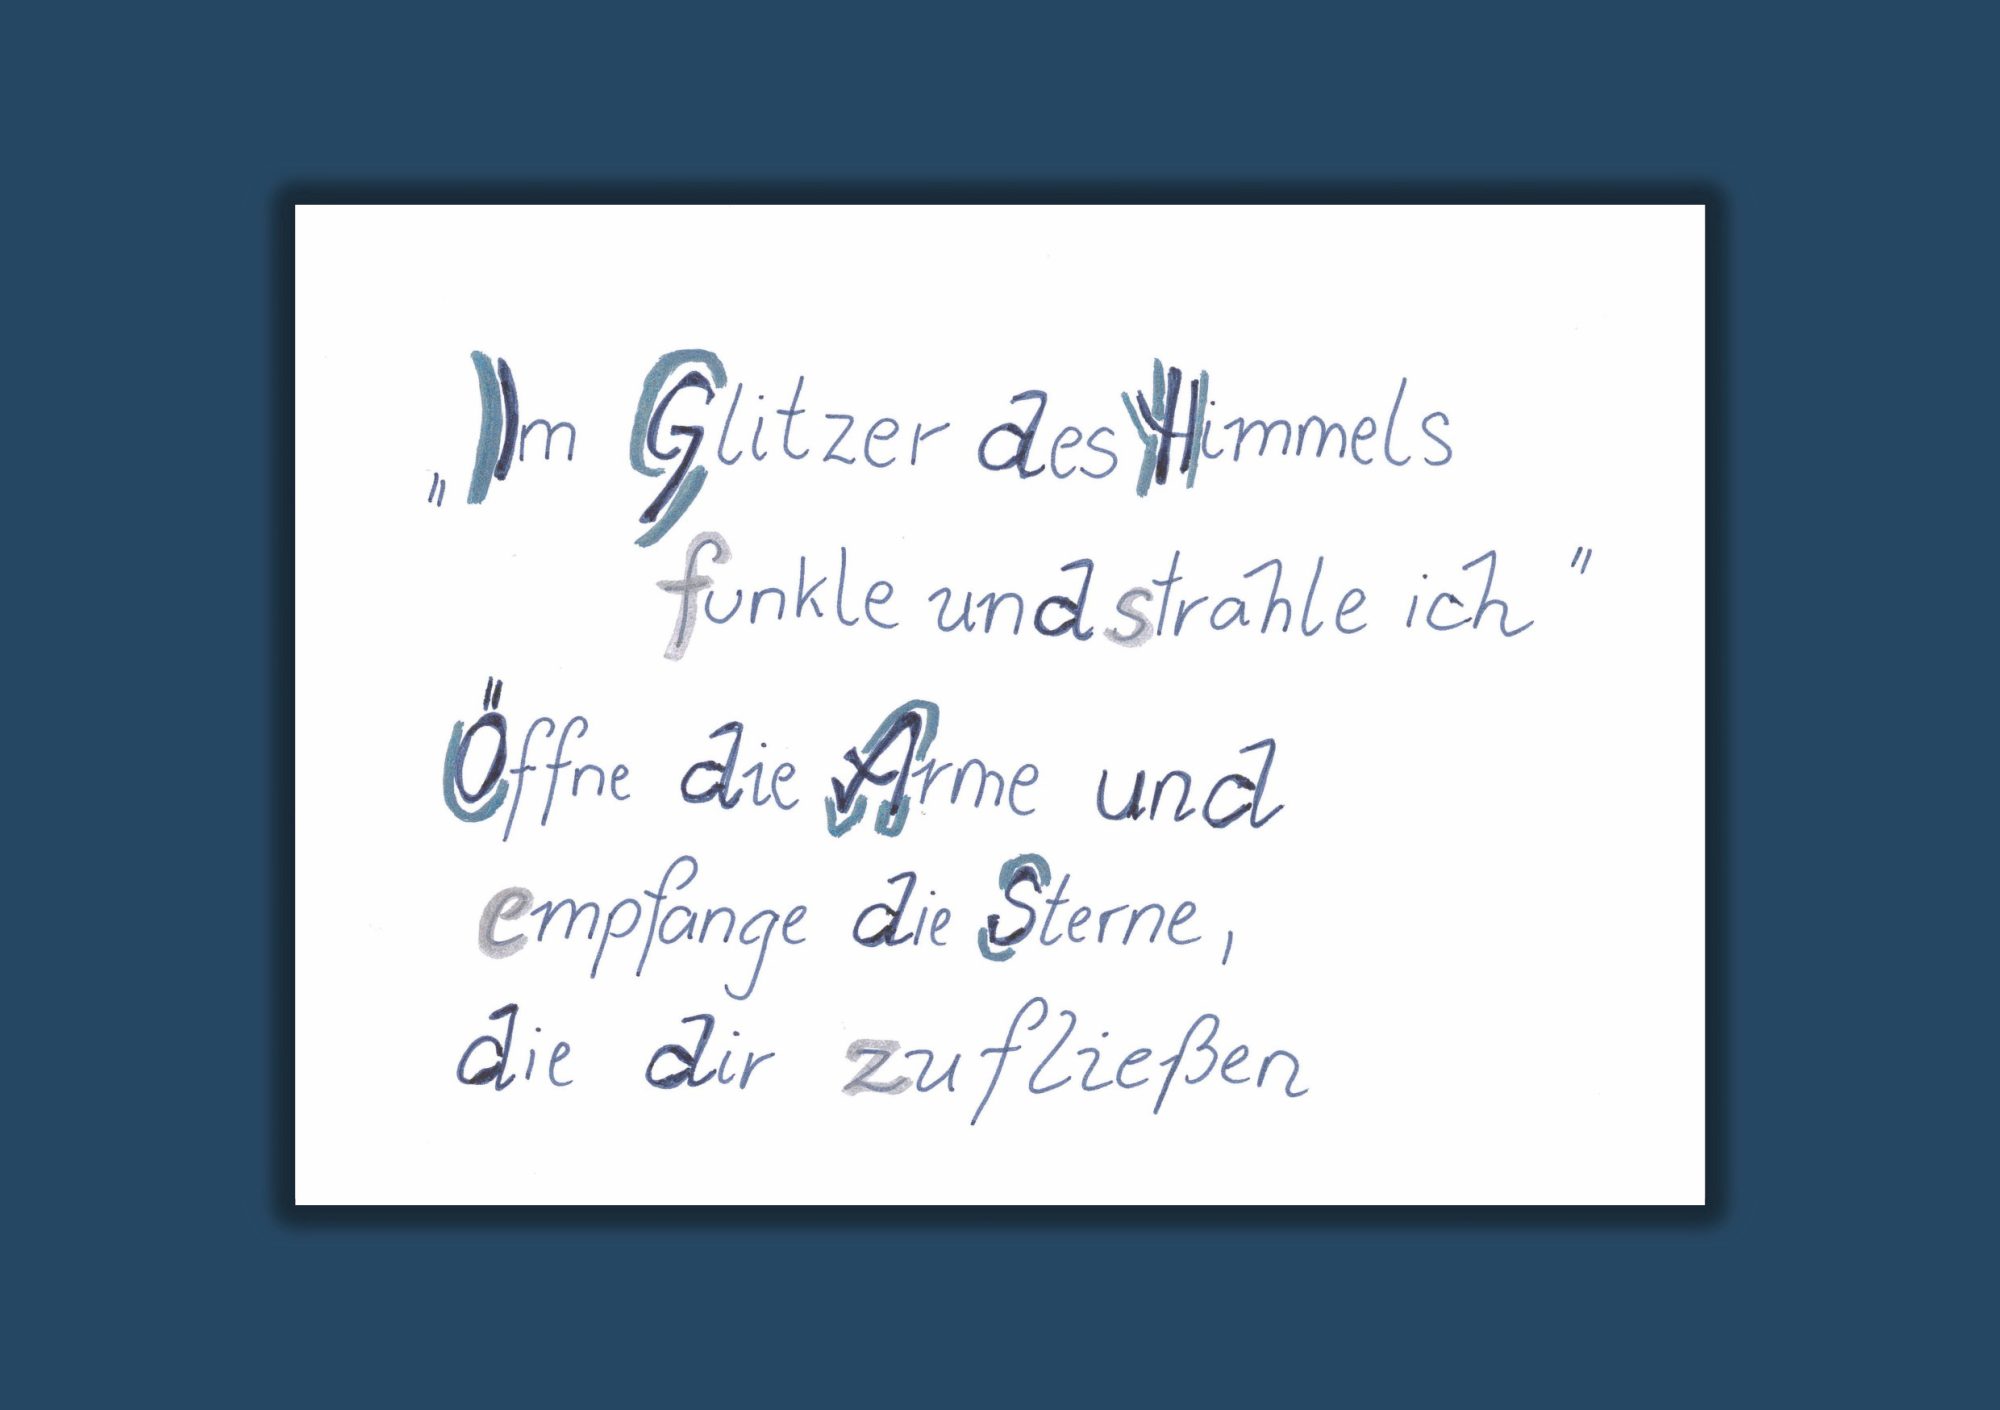 „Im Glitzer des Himmels
funkle und strahle ich"
Öffne die Arme und
empfange die Sterne,
die dir zufließen